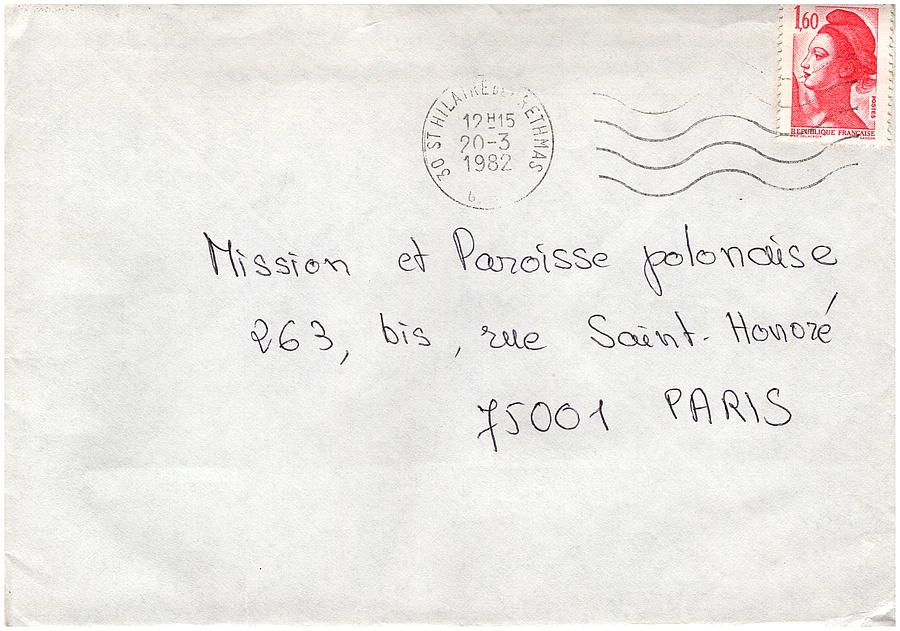 1,60
POSTES
REPUBLIQUE FRANÇAISE
30 ST HILAIRE DE BRETHMAS
12H15
20-3
1982
6
Mission et Paroisse polonaise
263, bis, rue Saint-Honoré
75001 PARIS